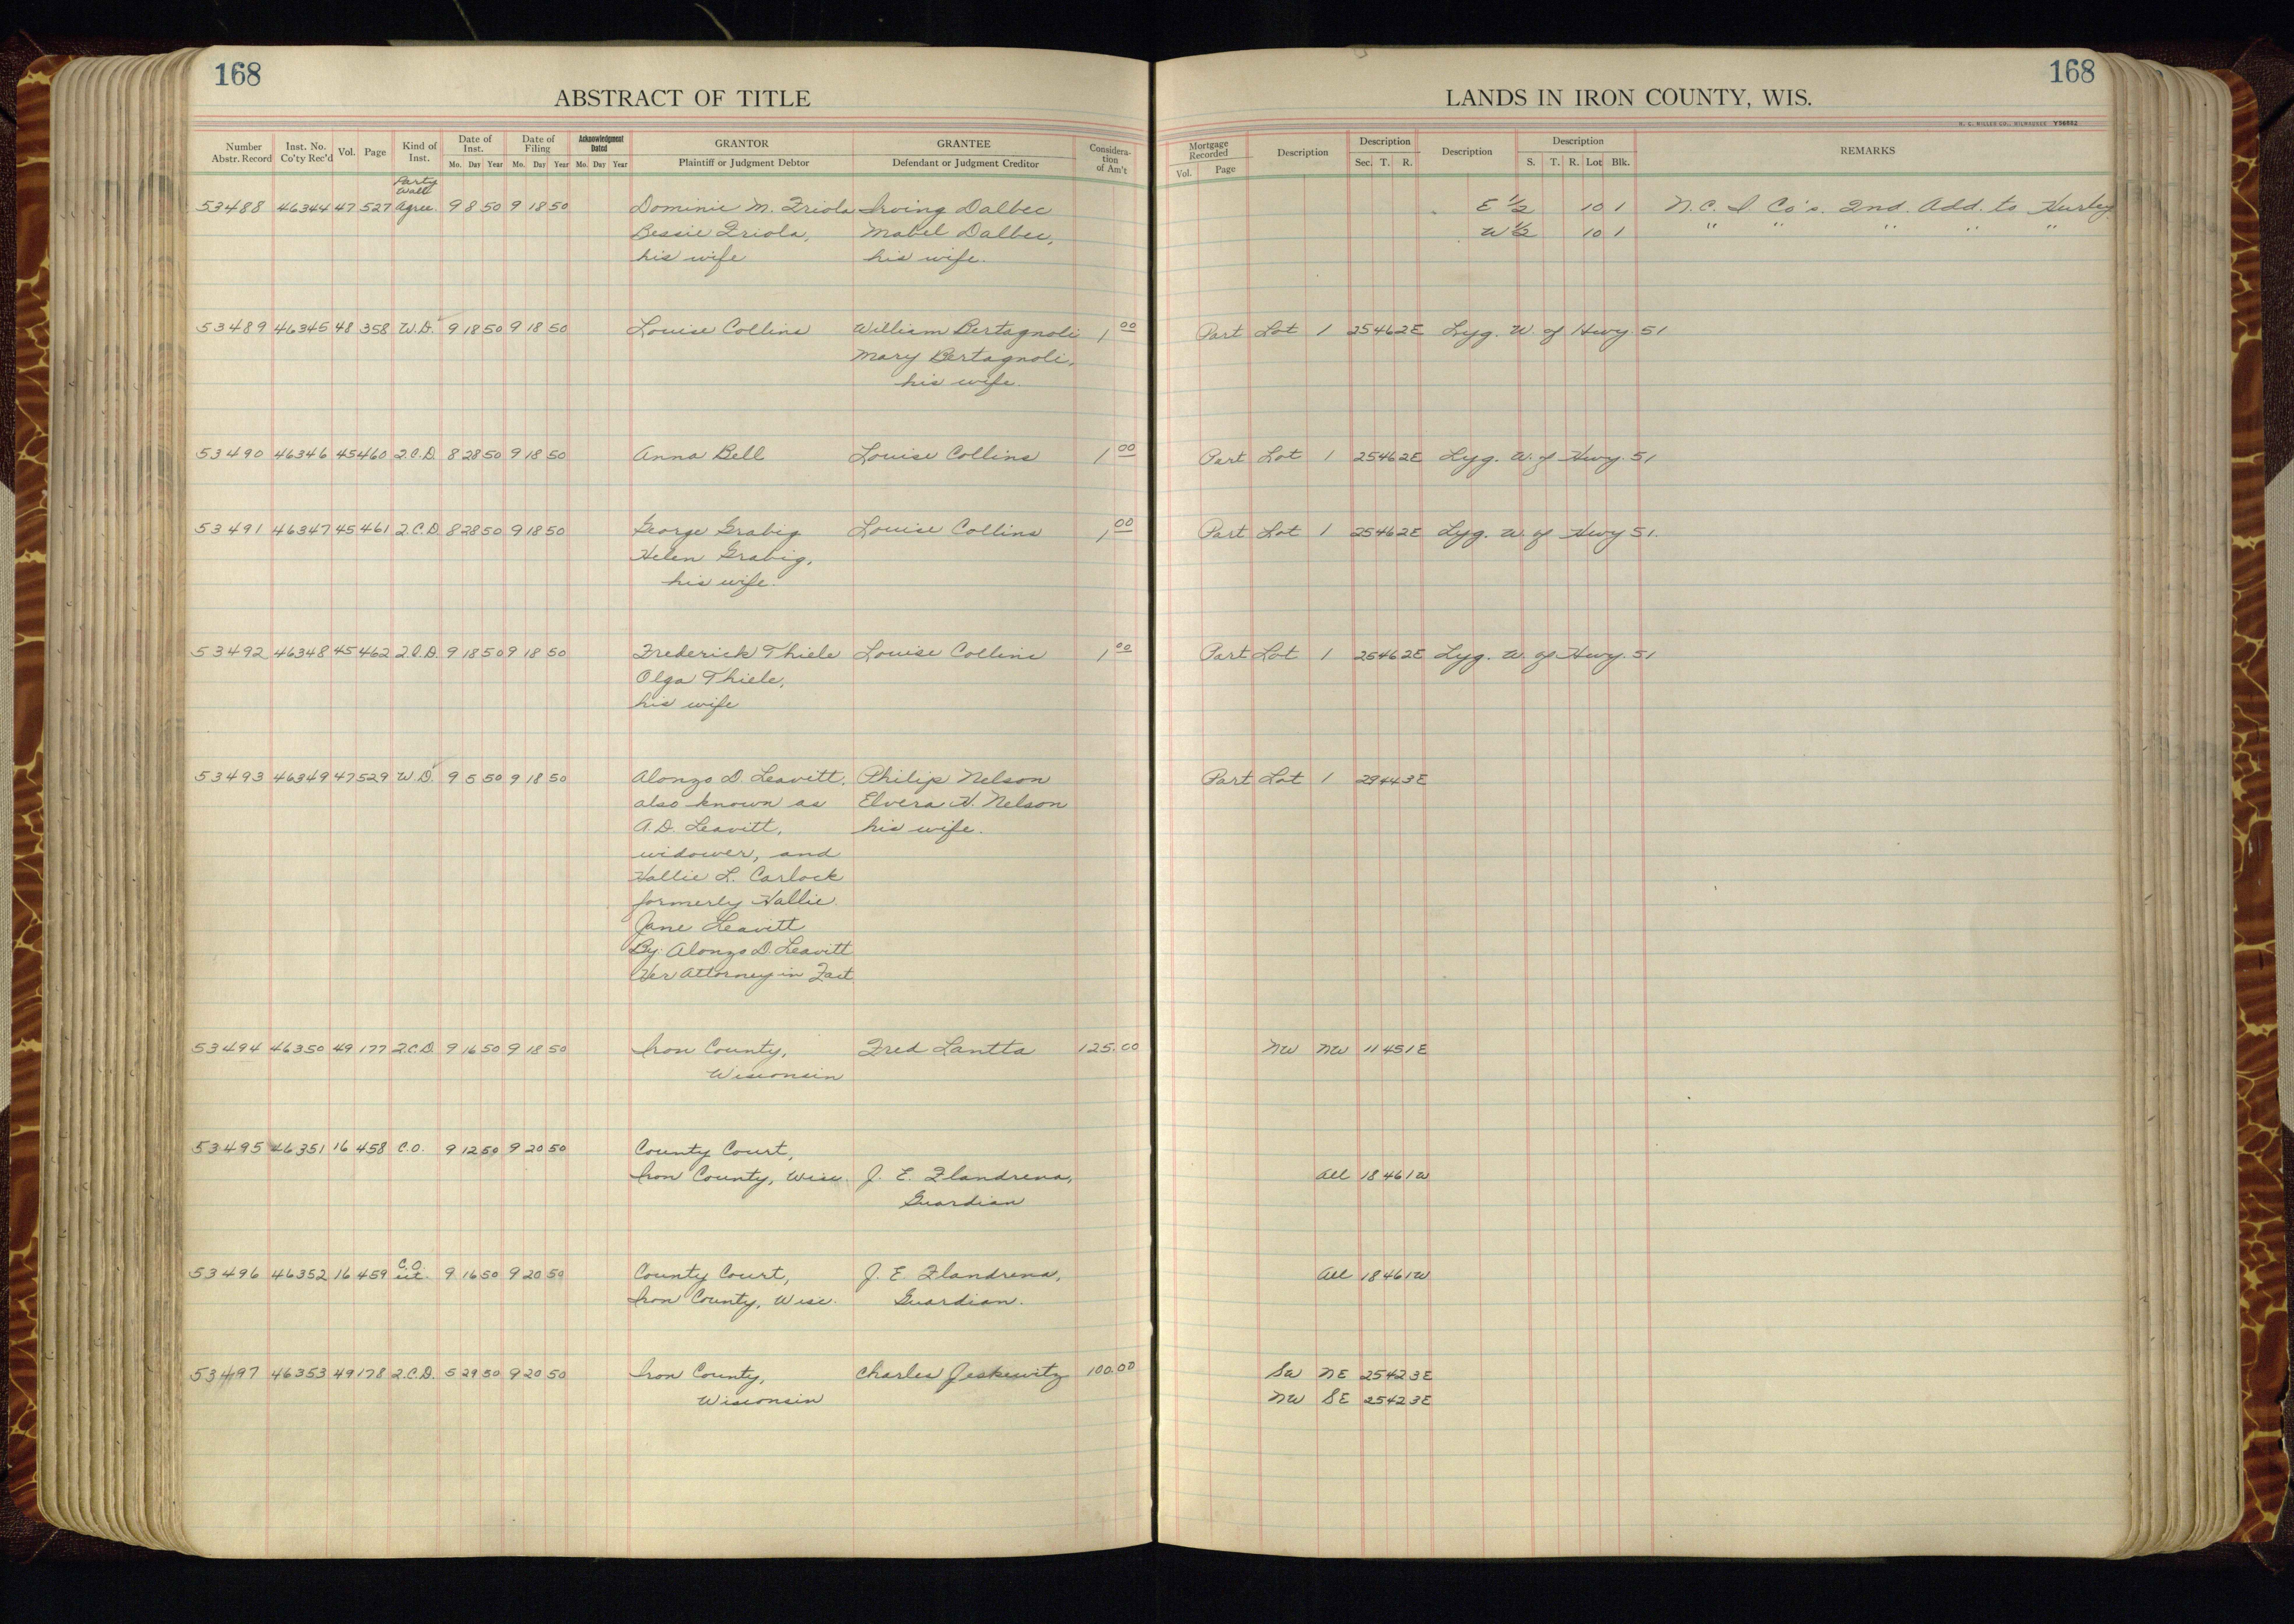 168
ABSTRACT OF TITLE
Number Abstr. Record
Inst. No. Co'ty Rec'd
Vol.
Page
Kind of Inst.
Date of Inst.
Mo. Day Year
Date of Filing
Mo. Day Year
Acknowledgment Dated
Mo. Day Year
GRANTOR
Plaintiff or Judgment Debtor
GRANTEE
Defendant or Judgment Creditor
Considera-
tion
of Am't
168
LANDS IN IRON COUNTY, WIS.
H. C. MILLER CO., MILWAUKEE Y56882
Mortgage Recorded
Vol. Page
Description
Description
Sec. T. R.
Description
Description
S. T. R. Lot Blk.
REMARKS
Party
Wall
53488 46344 47 527 Agree. 9 8 50 9 18 50 Dominic M. Friola Irving Dalbec E 1/2 10 1 N.C. I Co's. 2nd. Add. to Hurley
Bessie Friola, Mabel Dalbec, W 1/2 10 1 " " " " "
his wife his wife.
53489 46345 48 358 W.D. 9 18 50 9 18 50 Louise Collins William Bertagnoli 1 00 Part Lot 1 25 46 2E Lyg. W. of Hwy. 51
Mary Bertagnoli,
his wife.
53490 46346 45 460 Q.C.D. 8 28 50 9 18 50 Anna Bell Louise Collins 1 00 Part Lot 1 25 46 2E Lyg. W. of Hwy. 51
53491 46347 45 461 Q.C.D. 8 28 50 9 18 50 George Grabig Louise Collins 1 00 Part Lot 1 25 46 2E Lyg. W. of Hwy 51.
Helen Grabig,
his wife.
53492 46348 45 462 Q.C.D. 9 18 50 9 18 50 Frederick Thiele Louise Collins 1 00 Part Lot 1 25 46 2E Lyg. W. of Hwy. 51
Olga Thiele,
his wife
53493 46349 47 529 W.D. 9 5 50 9 18 50 Alonzo D. Leavitt, Philip Nelson Part Lot 1 29 44 3E
also known as Elvera H. Nelson
A.D. Leavitt, his wife.
widower, and
Hallie L. Carlock
formerly Hallie
Jane Leavitt
By: Alonzo D. Leavitt
Her Attorney in Fact.
53494 46350 49 177 Q.C.D. 9 16 50 9 18 50 Iron County, Fred Lantta 125.00 NW NW 11 45 1E
Wisconsin
53495 46351 16 458 C.O. 9 12 50 9 20 50 County Court,
Iron County, Wisc. J. E. Flandrena, All 18 46 1W
Guardian
C.O.
53496 46352 16 459 9 16 50 9 20 50 County Court, J. E. Flandrena, All 18 46 1W
Iron County, Wisc. Guardian.
53497 46353 49 178 Q.C.D. 5 29 50 9 20 50 Iron County, Charles Jeskewitz 100.00 SW NE 25 42 3E
Wisconsin NW SE 25 42 3E